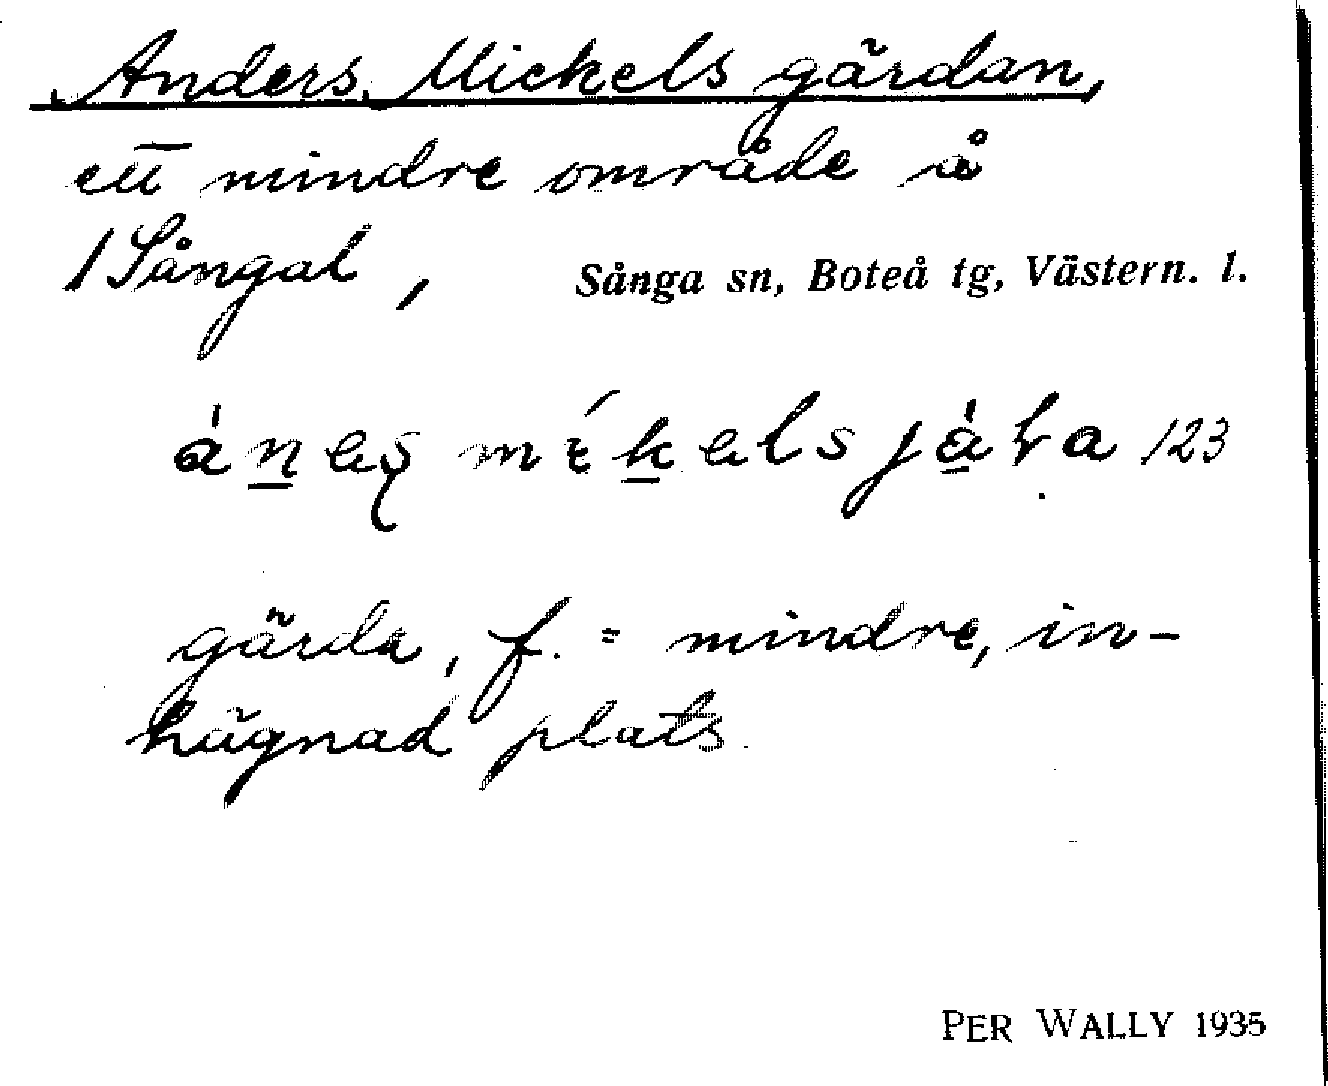 Anders Mickels gärdan,
ett mindre område å
/Sångal, Sånga sn, Boteå tg, Västern. l.
123
gärda, f. = mindre, in-
hägnad plats.
PER WALLY 1935